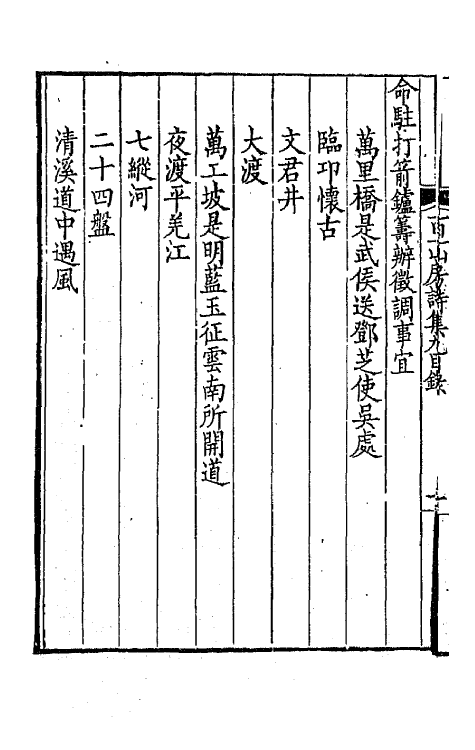 百一山房詩集九目錄
命駐打箭鑪籌辦徵調事宜
萬里橋是武侯送鄧芝使吳處
臨邛懷古
文君井
大渡
萬工坡是明藍玉征雲南所開道
夜渡平羌江
七縱河
二十四盤
清溪道中遇風